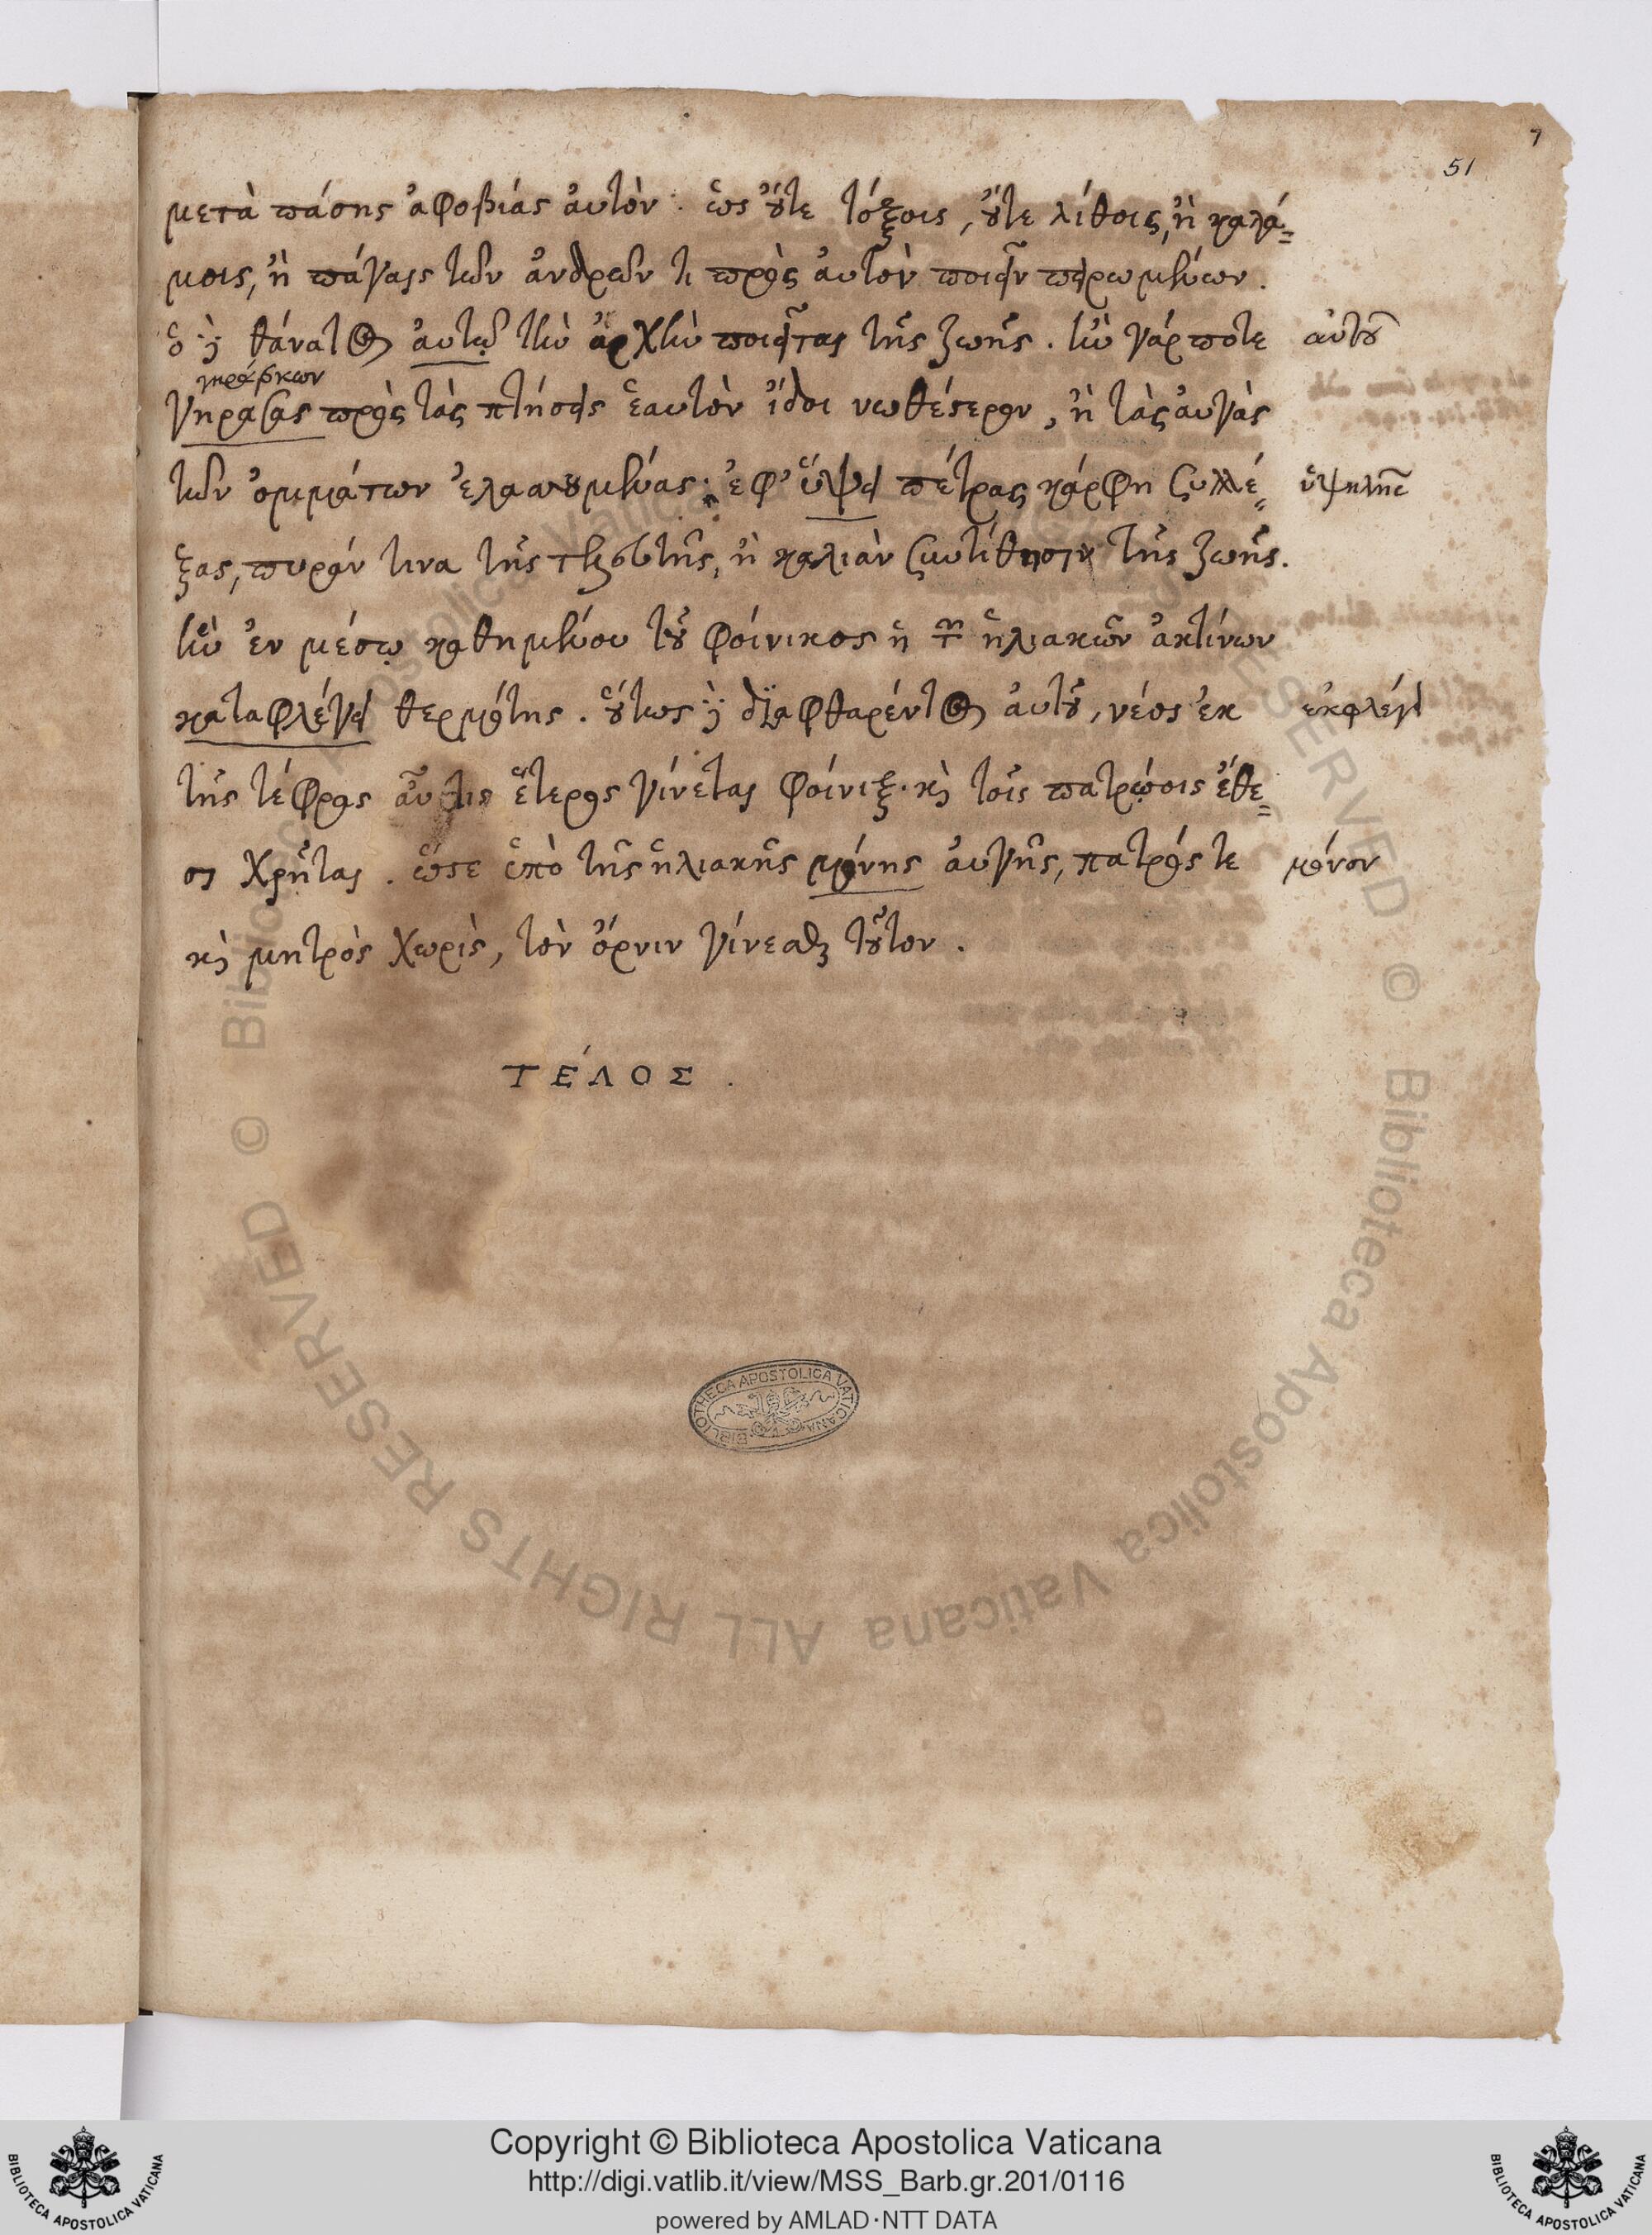 7
51
μετὰ πάσης ἀφοβίας ἀυτὸν. ὡς οὔτε τόξοις, οὔτε λίθοις, ἢ καλά=
μοις, ἢ πάγαις τῶν ἀνδρῶν τι πρὸς ἀυτὸν ποιεῖν πειρωμένων.
ὁ δὲ θάνατος ἀυτῷ τὴν ἀρχὴν ποιεῖται τῆς ζωῆς. ἢν γάρ ποτε αὐτοῦ
γηράσκων
γηράσας πρὸς τὰς πτήσεις ἑαυτὸν ἴδοι νωθέστερον, ἢ τὰς ἀυγὰς
τῶν ὀμμάτων ἐλαττουμένας, ἐφ' ὕψει πέτρας κάρφη συλλέ= ὑψηλῆς
ξας, πυράν τινα τῆς τελευτῆς, ἢ καλιὰν συντίθησι τῆς ζωῆς.
ἣν ἐν μέσῳ καθημένου τοῦ φοίνικος ἡ τῶν ἡλιακῶν ἀκτίνων
καταφλέγει θερμότης. οὕτως δὲ διαφθαρέντος ἀυτοῦ, νέος ἐκ ἐκφλέγει
τῆς τέφρας αὖθις ἕτερος γίνεται φοίνιξ. καὶ τοῖς πατρῴοις ἔθε=
σι χρῆται. ὥστε ὑπὸ τῆς ἡλιακῆς μόνης ἀυγῆς, πατρός τε μόνον
καὶ μητρὸς χωρὶς, τὸν ὄρνιν γίνεσθαι τοῦτον.
ΤΈΛΟΣ.
BIBLIOTHECA APOSTOLICA VATICANA
© Biblioteca Apostolica Vaticana ALL RIGHTS RESERVED
Copyright © Biblioteca Apostolica Vaticana
http://digi.vatlib.it/view/MSS_Barb.gr.201/0116
powered by AMLAD·NTT DATA
BIBLIOTECA APOSTOLICA VATICANA
BIBLIOTECA APOSTOLICA VATICANA